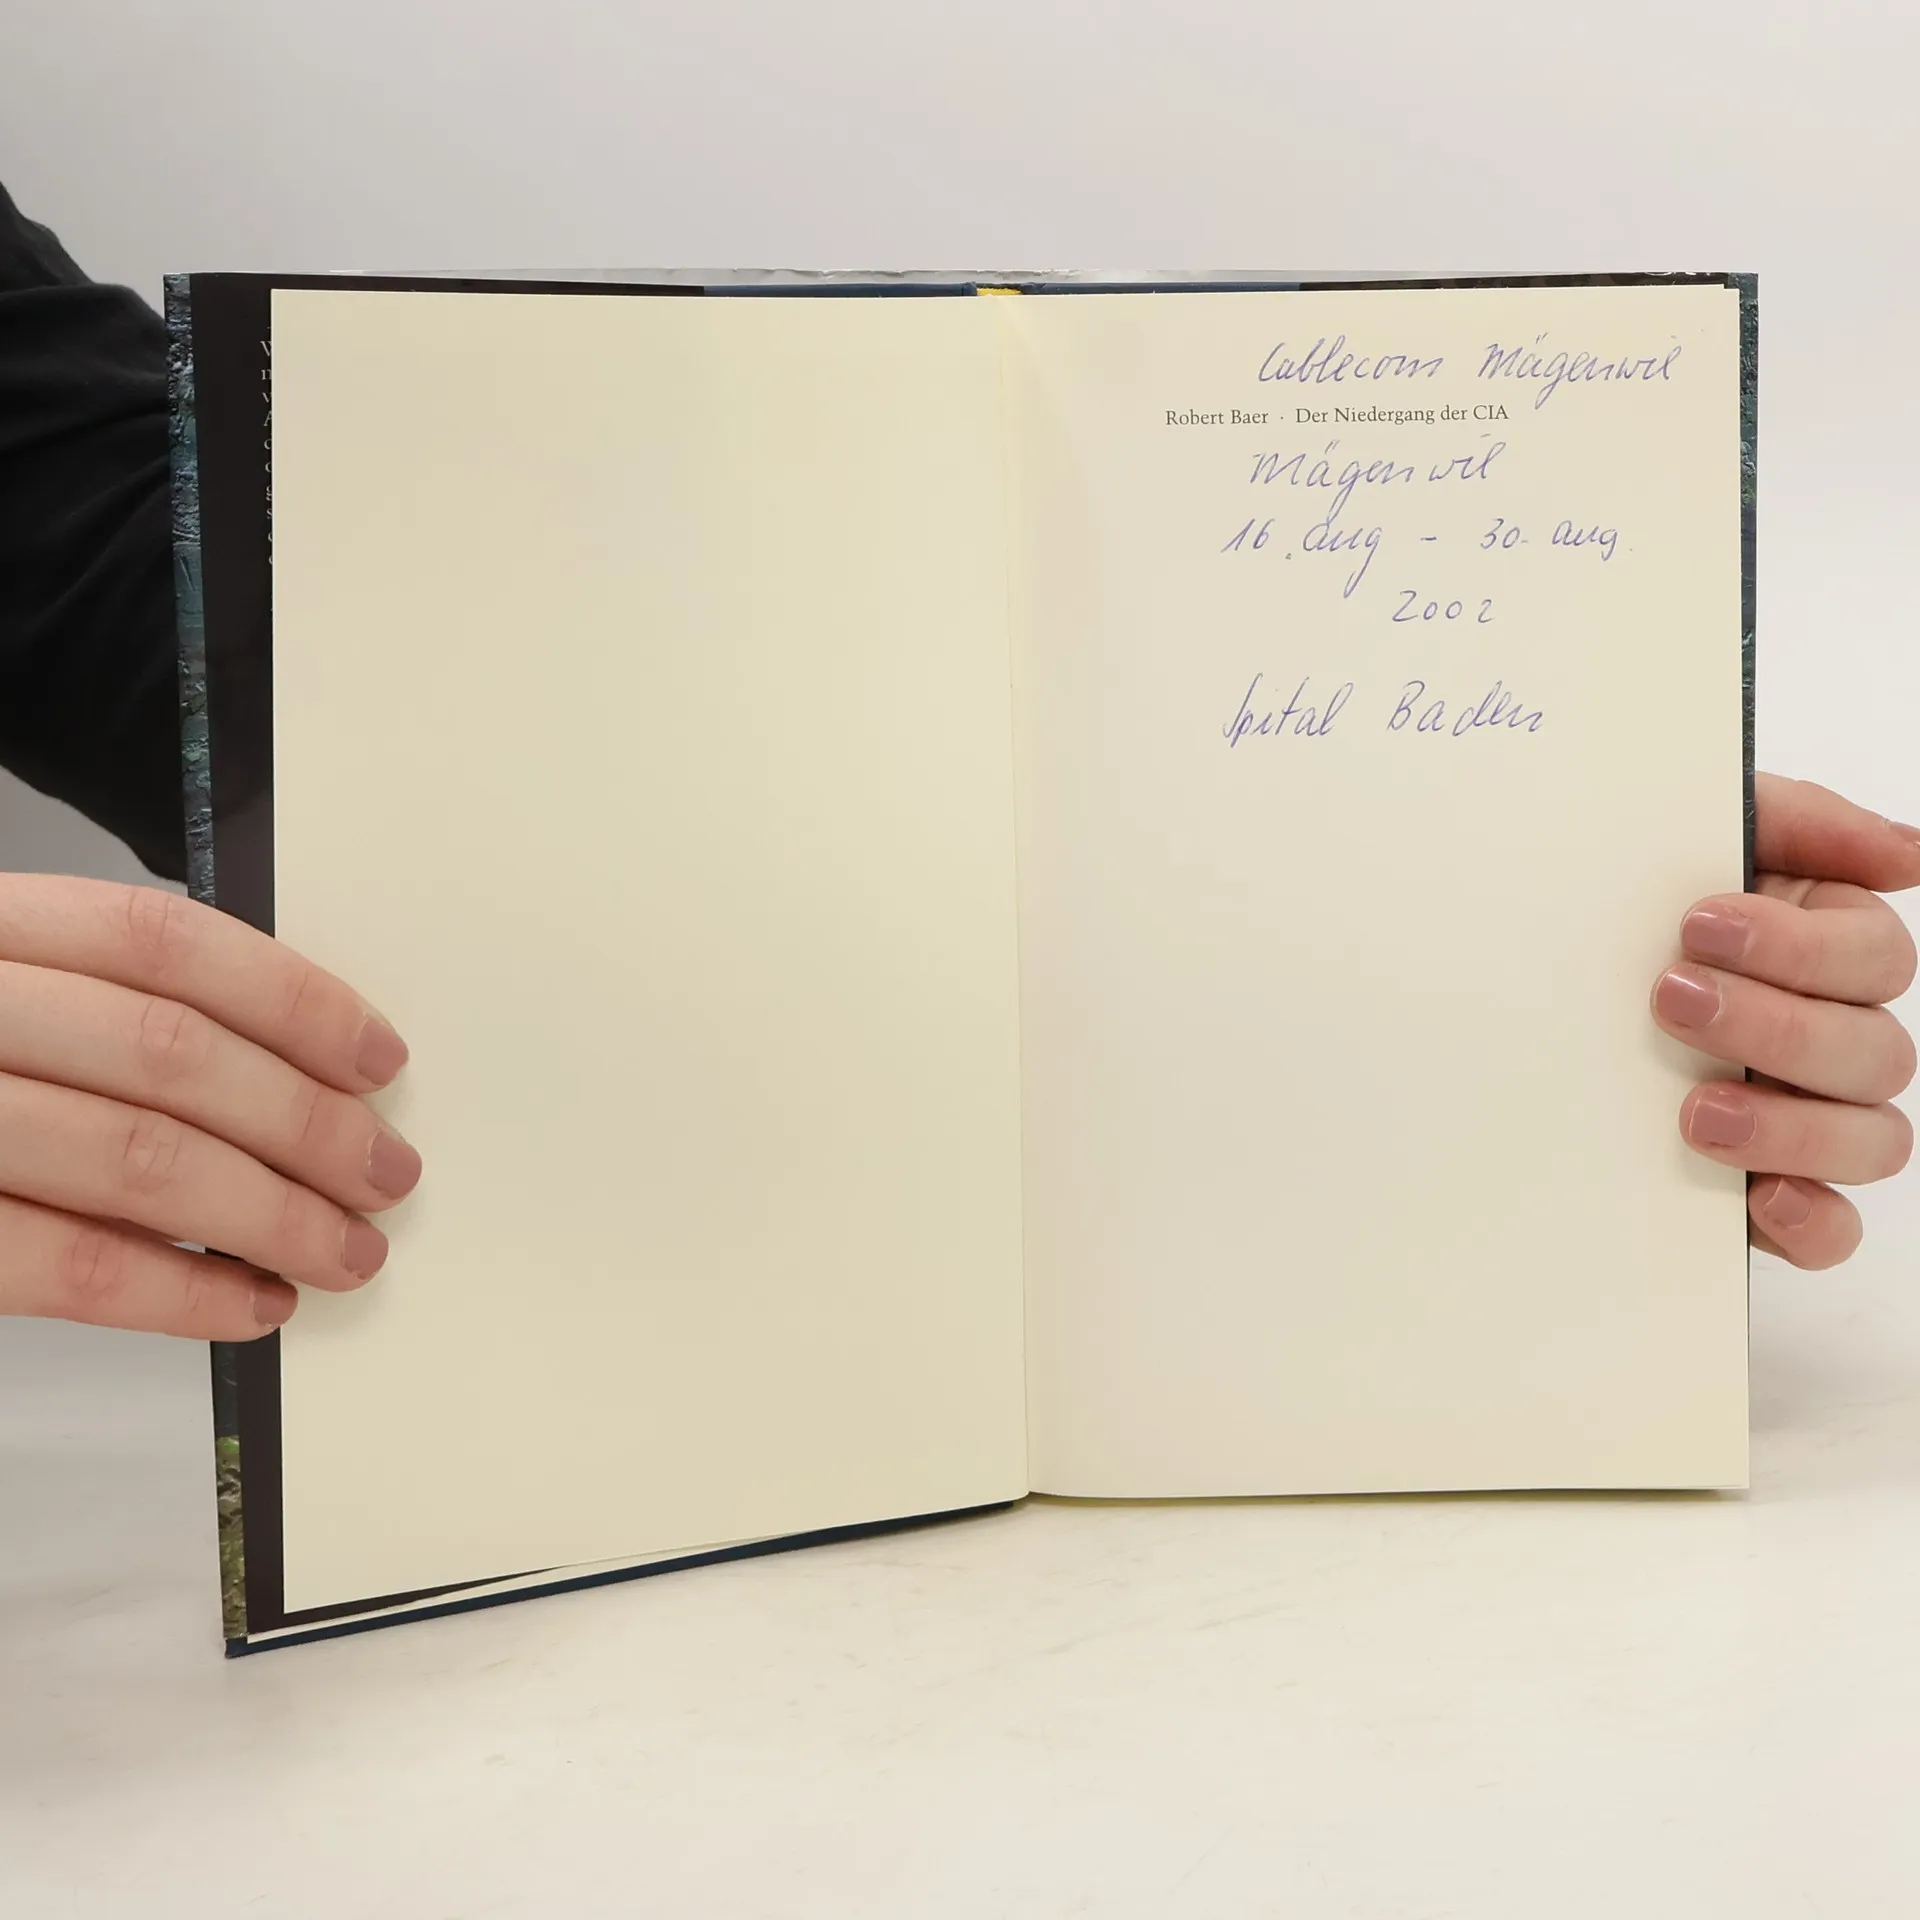 Cablecom Mägenwil
Robert Baer · Der Niedergang der CIA
Mägenwil
16. aug - 30. aug.
2002
Spital Baden